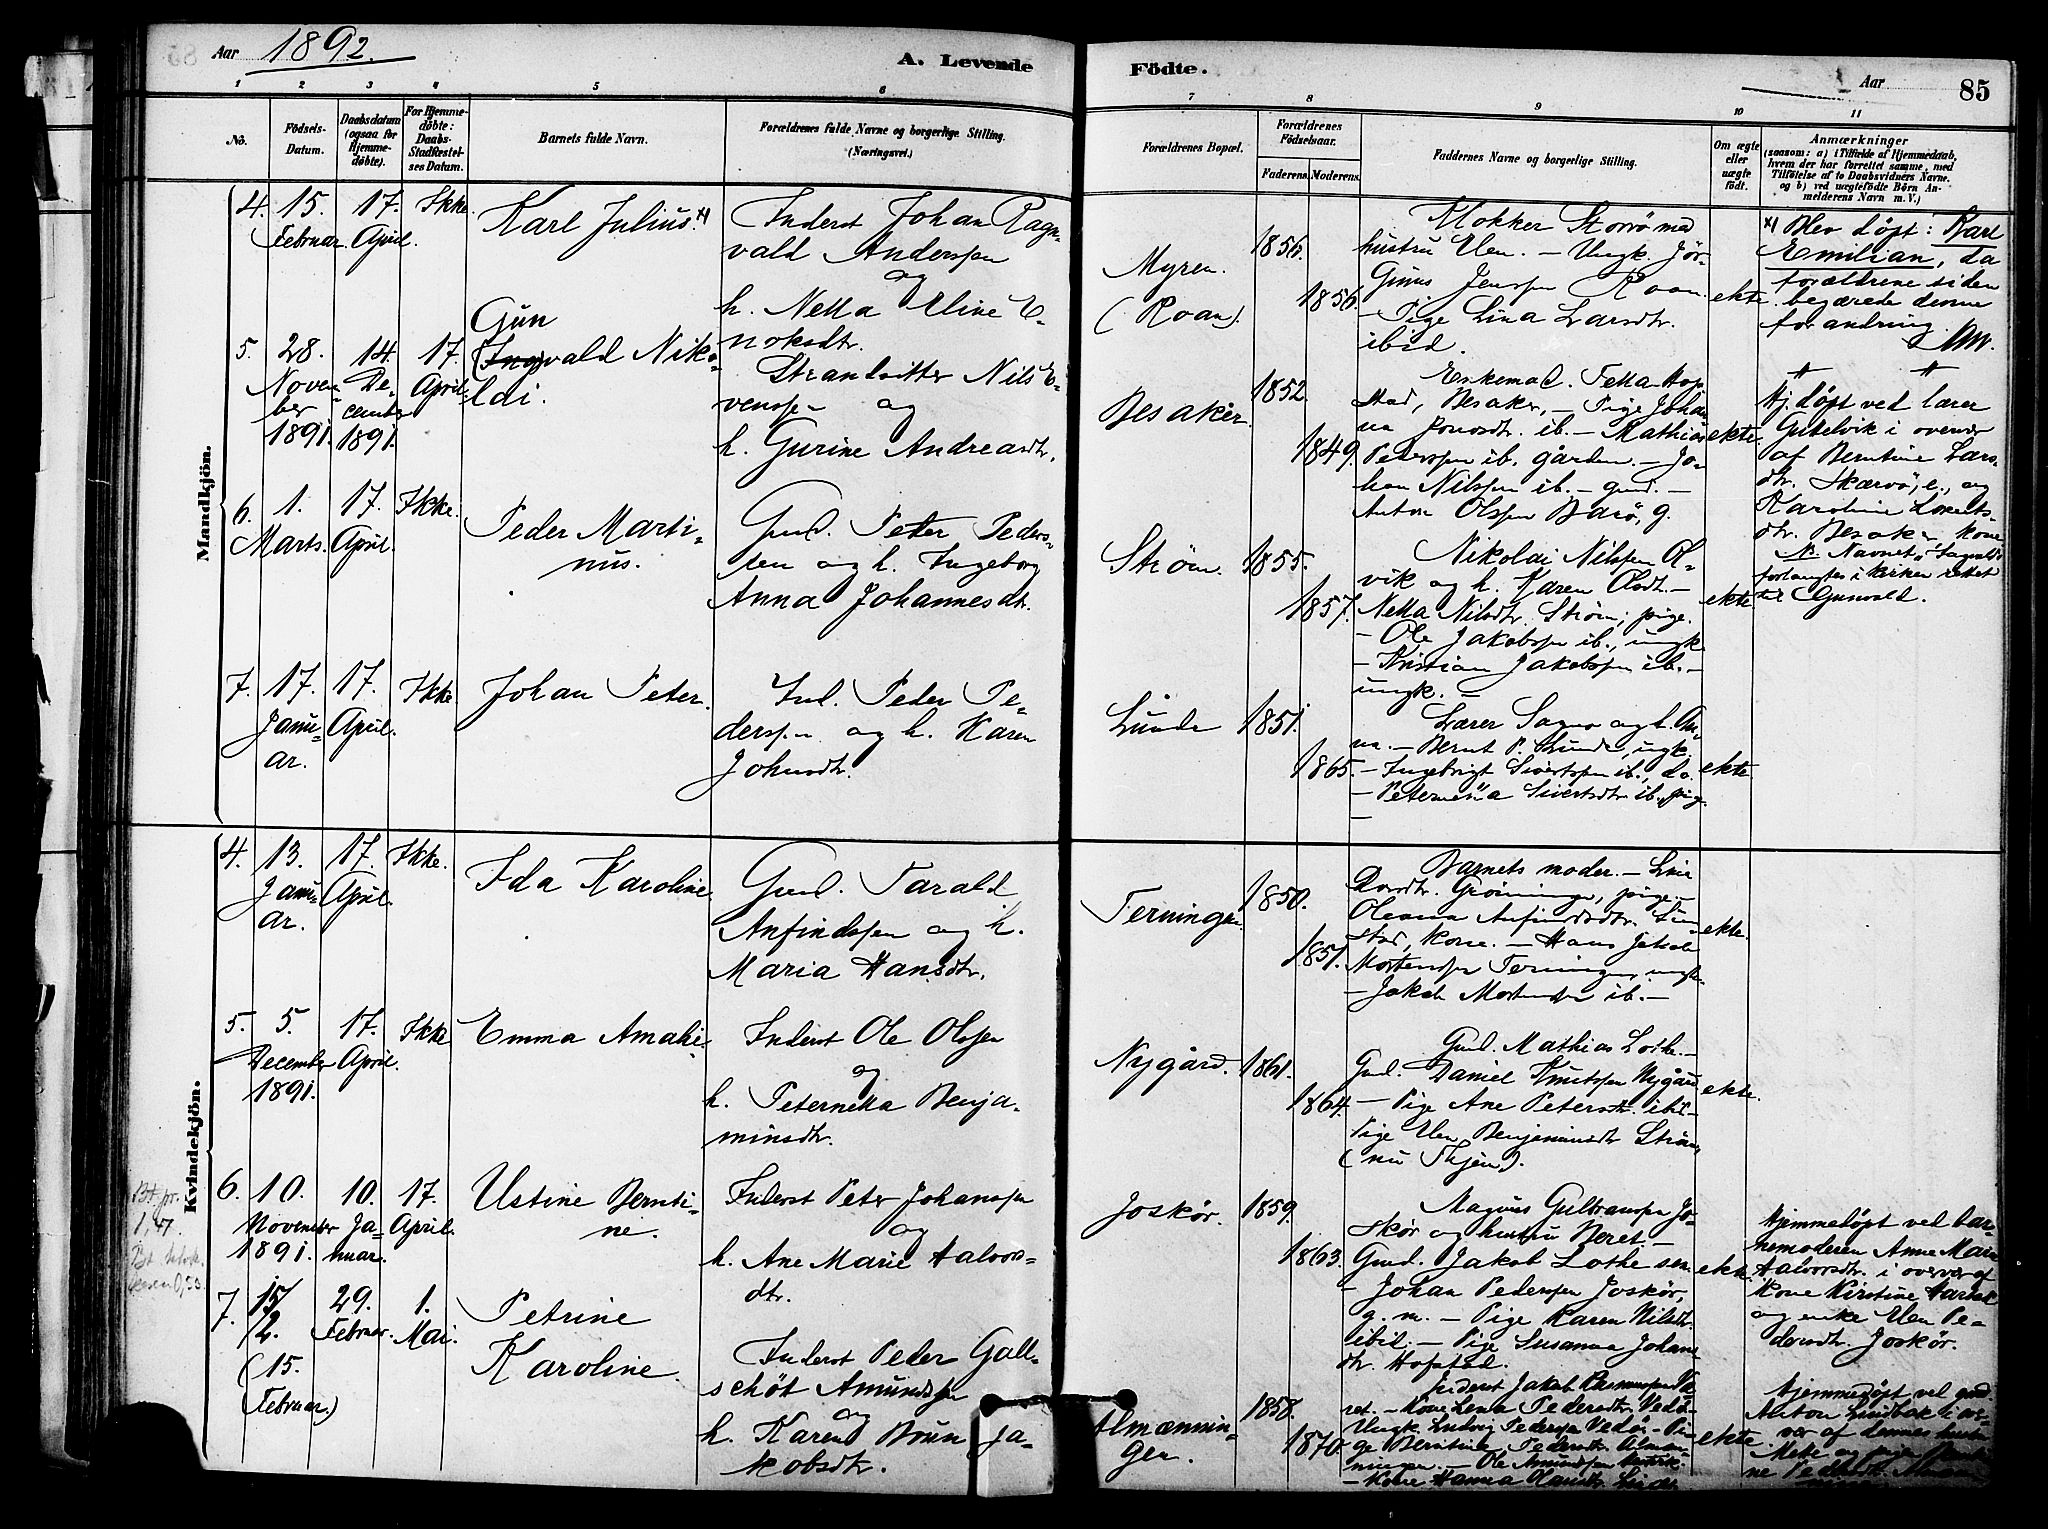 Aar 1892.
A. Levende Födte.
Aar 85
1 2 3 4 5 6 7 8 9 10 11
No.
Födsels-Datum.
Daabsdatum (ogsaa for Hjemme-döbte).
For Hjemme-döbte: Daabs-Stadfæstel-ses Datum.
Barnets fulde Navn.
Forældrenes fulde Navne og borgerlige Stilling.
(Næringsvei.)
Forældrenes Bopæl.
Forældrenes Födselsaar.
Faderens. Moderens.
Faddernes Navne og borgerlige Stilling.
Om ægte eller uægte födt.
Anmærkninger
(saasom: a) i Tilfælde af Hjemmedaab,
hvem der har forrettet samme, med
Tilföielse af to Daabsvidners Navne,
og b) ved uægtefödte Börn An-
melderens Navn m.V.)
Mandkjön.
4. 15. Februar. 17. April. Ikke.
Karl Julius. x)
Inderst Johan Ragn-
vald Anderssen
og
h. Netta Eline E-
noksdtr.
Myren.
(Roan).
1856.
1856.
Klokker Storrø med
hustru Elen. – Ungk. Jør-
Ginus Jenssen Roan.
– Pige Lina Larsdtr.
ibid.
ekte.
x) Blev døpt: Karl
Emilian, da
forældrene siden
begjærede denne
forandring.
5. 28. November 1891. 14. December 1891. 17. April.
Gun
(Ing)vald Nik-
lai.
Strandsitter Nils E-
venssen og
h. Gurine Andreasdtr.
Besaker.
1852.
1849.
Enkemad. Tetta Hop-
stad, Besaker, – Pige Johan-
na Jonasdtr. ib. – Mathias
Peterssen ib. gården. – Jo-
han Nilssen ib. – gmd. –
Anton Olssen Barø, g.
ekte
Hj. døpt ved lærer
i overvær
af Berntine Lars-
dtr. Skjærvø, e., og
Karoline Lorents-
dtr. Besaker, kone
N. Navnet Ingvald
forlangtes i kirken rettet
til Gunvald.
6. 1. Marts. 17. April. Ikke.
Peder Marti-
nus.
Gmd. Peter Peders-
sen og h. Ingeborg
Anna Johannesdtr.
Strøm.
1855.
1857.
Nikolai Nilssen Ol-
vik og h. Karen Olsdtr. –
Netta Nilsdtr. Strøm, pige.
– Ole Jakobssen ib., ungk.
– Kristian Jakobssen ib. –
ungk. –
ekte
7. 17. Januar. 17. April. Ikke
Johan Peter.
Ind. Peder Pe-
derssen og h. Karen
Johnsdtr.
Lunde
1851.
1865.
Lærer Sagmo og h. An-
na. – Bernt P. Lunde, ungk.
– Ingebrigt Sivertssen ib., do.
– Peternella Sivertsdtr. ib., pige
–
ekte
Kvindekjön.
4. 13. Januar. 17. April. Ikke.
Ida Karoline.
Gmd. Tarald
Anfindssen og h.
Maria Hansdtr.
Terningen
1850.
1851.
Barnets moder. – Line
Grøninge, pige. –
Oleanna Anfindsdtr.
stad, kone. – Hans Jakob
Mortenssen Terningen, ungk.
– Jakob Mortenssen ib. –
ekte.
5. 5. December 1891. 17. April. Ikke
Emma Amalie.
Inderst Ole Olssen
og
h. Peternetta Benja-
minsdtr.
Nygård.
1861.
1864.
Gmd. Mathias Lothe. –
Gmd. Daniel Knutssen Nygård
– Pige Ane Petersdtr. ibid.
Pige Elen Benjaminsdtr. Strøm,
(nu Skjen).
ekte.
6. 10. November 1891. 10. Januar. 17. April.
Ustine Bernti-
ne.
Inderst Peter Johanssen
og
h. Ane Marie Halvors-
dtr.
Joskør.
1859.
1863.
Magnus Gulbranssen Jo-
skør og hustru Beret –
Gmd. Jakob Lothe sen.
– Johan Pederssen Joskør,
g. m. – Pige Karen Nilsdtr.
ibid. – Pige Susanna Johans-
dtr. Hofstad.
ekte.
Hjemmedøpt ved bar-
nemoderen Anne Marie
Halvorsdtr. i overvær af
Kone Kirstine
og enke Elen Pe-
dersdtr. Joskør.
7. 15/2. (15. Februar.) 29. Februar. 1. Mai.
Petrine
Karoline.
Inderst Peder Gall-
schöt Amundssen
og
h. Karen Brun Ja-
kobsdtr.
Almænnin-
gen.
1858.
1870.
Inderst Jakob Rasmussen
– Kone Lena Pedersdtr. Vedø –
Ungk. Ludvig Pederssen Vedø – Pi-
ge Berntine Pedersdtr. Almæn-
ningen. – Ole Amundssen
– Kone Hanna
ekte
Hjemmedøpt ved gmd.
Anton Lindbak i over-
vær af dennes hustru
Mete og pige Bernti-
ne Pedersdtr.